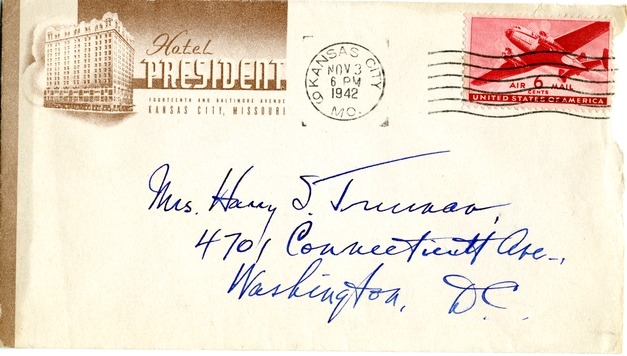 Hotel
PRESIDENT
FOURTEENTH AND BALTIMORE AVENUE
KANSAS CITY, MISSOURI
KANSAS CITY
NOV 3
6 PM
1942
MO.
AIR 6 MAIL
CENTS
UNITED STATES OF AMERICA
Mrs. Harry S. Truman,
4701 Connecticutt Ave.,
Washington, D.C.